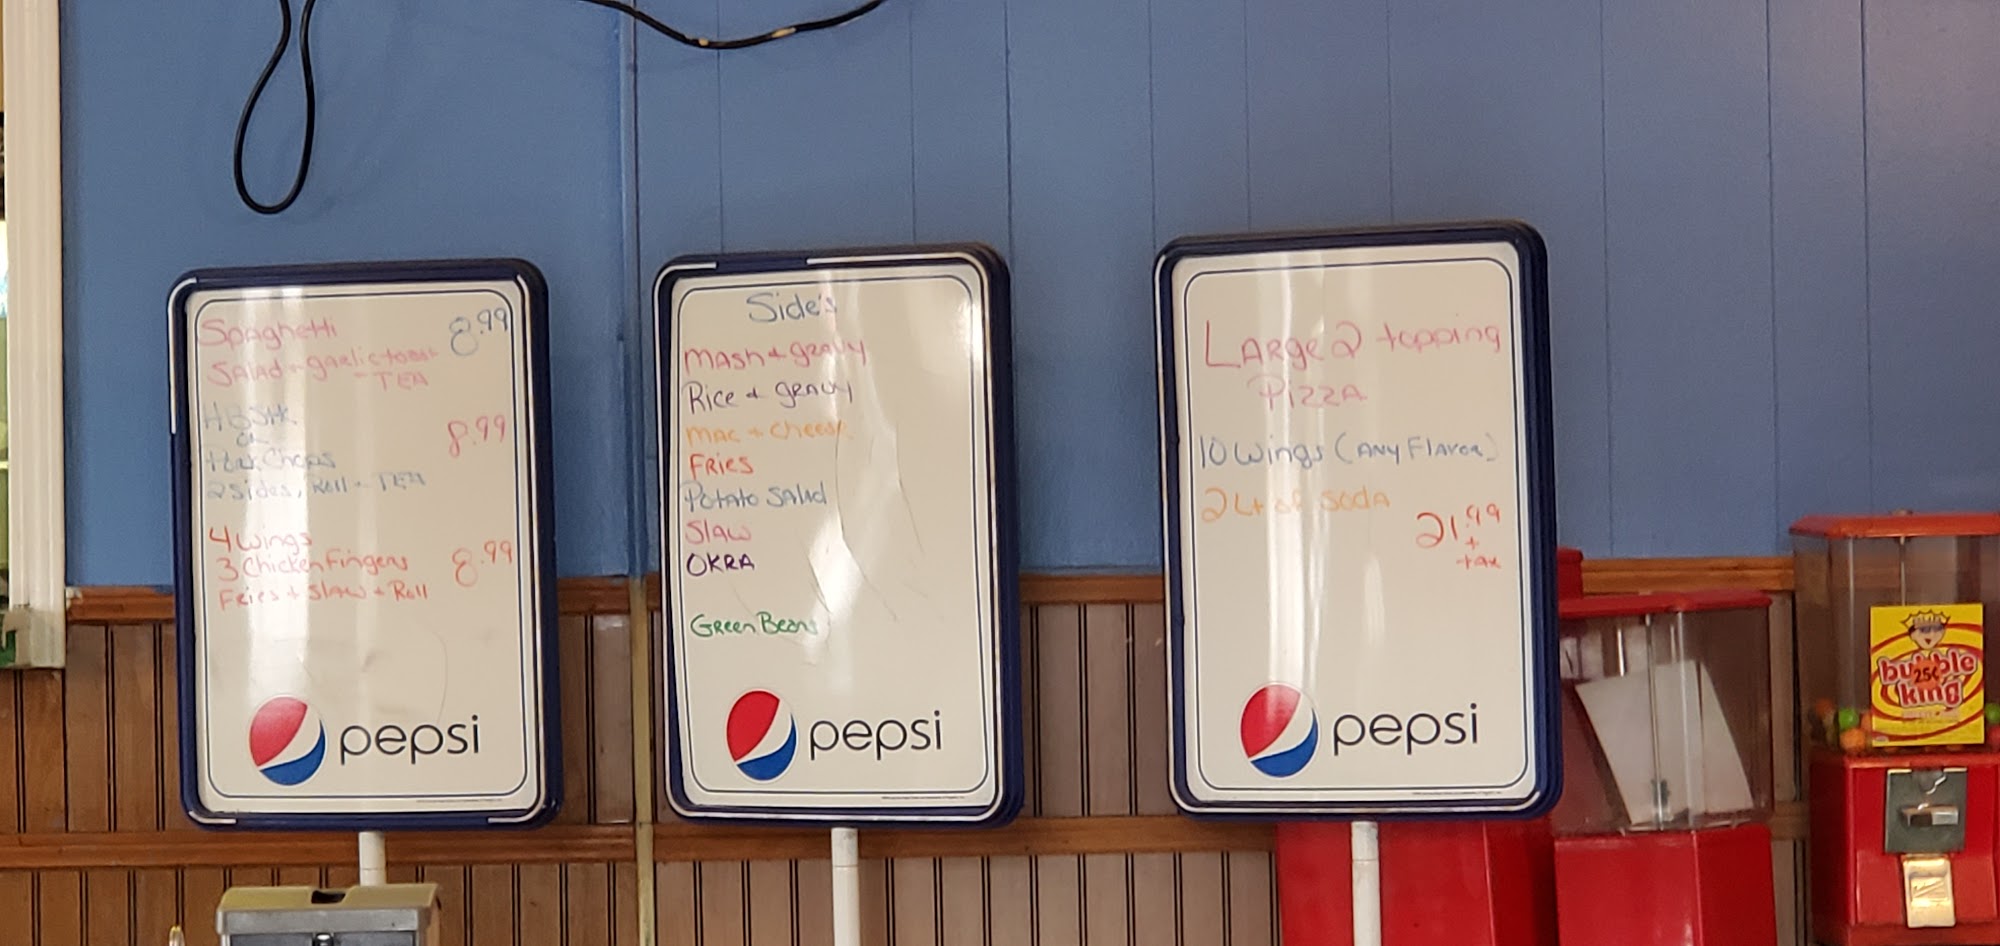 Spaghetti 8.99
Salad + garlic toast
- TEA
HB STK 8.99
OR
Pork Chops
2 sides, Roll + TEA
4 wings
3 Chicken Fingers 8.99
Fries + Slaw + Roll
pepsi
Side's
Mash + gravy
Rice + gravy
Mac + Cheese
Fries
Potato Salad
Slaw
OKRA
Green Beans
pepsi
Large 2 topping
Pizza
10 Wings (Any Flavor)
2 Lt of Soda
21.99
+
tax
pepsi
bubble
25¢
king